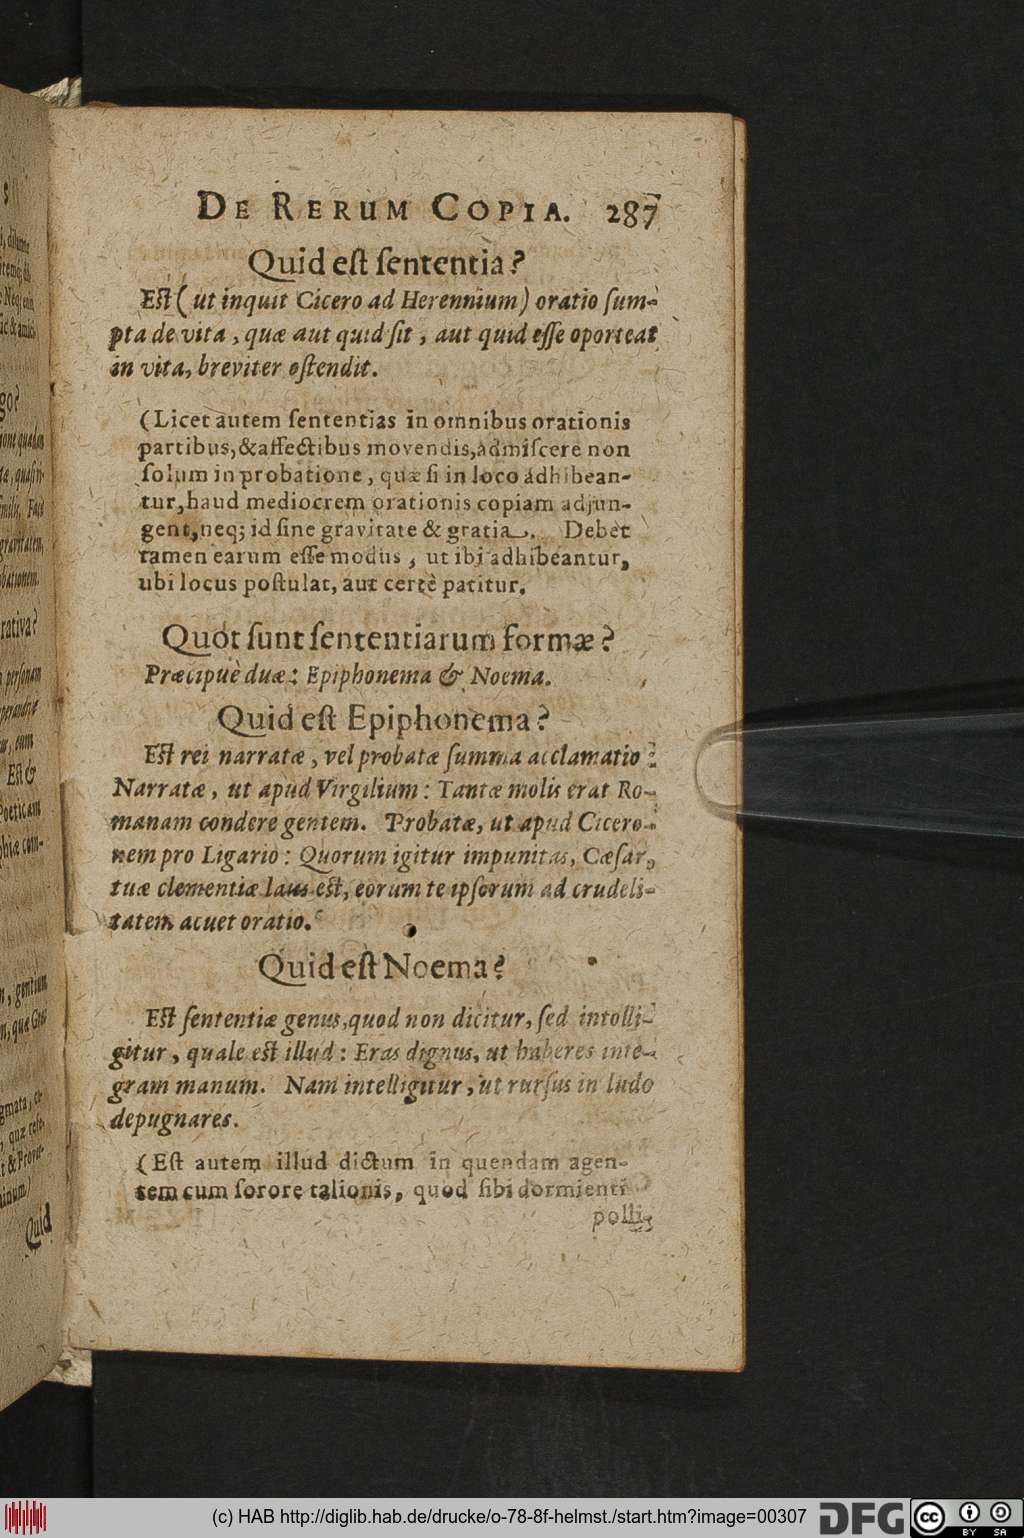 DE RERUM COPIA. 287
Quid est sententia?
Est (ut inquit Cicero ad Herennium) oratio sum-
pta de vita, quæ aut quid sit, aut quid esse oporteat
in vita, breviter ostendit.
(Licet autem sententias in omnibus orationis
partibus, & affectibus movendis, admiscere non
solum in probatione, quæ si in loco adhibean-
tur, haud mediocrem orationis copiam adjun-
gent, neq; id sine gravitate & gratia. Debet
tamen earum esse modus, ut ibi adhibeantur,
ubi locus postulat, aut certè patitur.
Quot sunt sententiarum formæ?
Præcipuè duæ: Epiphonema & Noema.
Quid est Epiphonema?
Est rei narratæ, vel probatæ summa acclamatio:
Narratæ, ut apud Virgilium: Tantæ molis erat Ro-
manam condere gentem. Probatæ, ut apud Cicero-
nem pro Ligario: Quorum igitur impunitas, Cæsar,
tuæ clementiæ laus est, eorum te ipsorum ad crudeli-
tatem acuet oratio.
Quid est Noema?
Est sententiæ genus, quod non dicitur, sed intolli-
gitur, quale est illud: Eras dignus, ut haberes inte-
gram manum. Nam intelligitur, ut rursus in ludo
depugnares.
(Est autem illud dictum in quendam agen-
tem cum sorore talionis, quod sibi dormienti
polli-
Quid
(c) HAB http://diglib.hab.de/drucke/o-78-8f-helmst./start.htm?image=00307 DFG cc BY SA